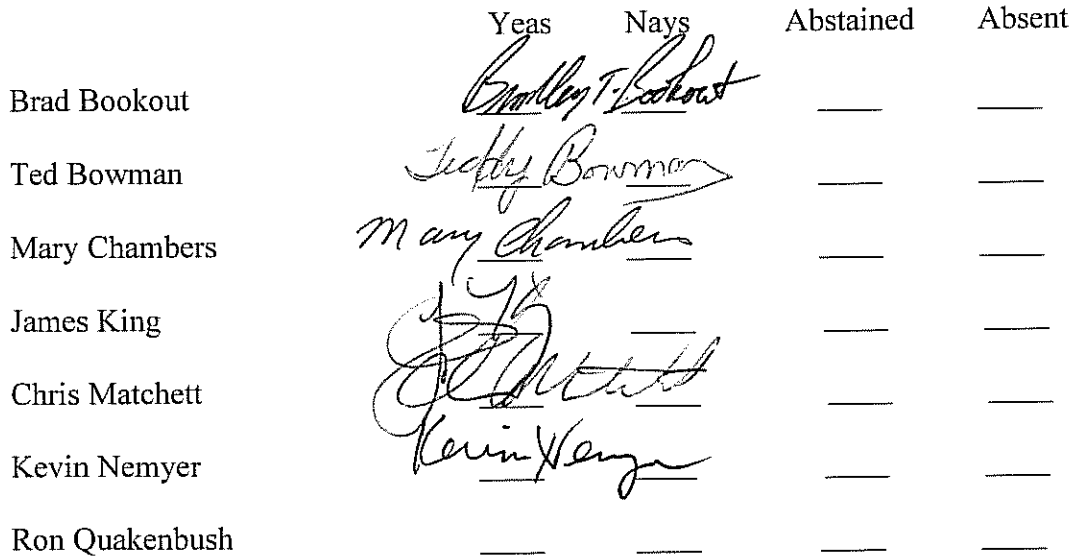 Yeas Nays Abstained Absent
Brad Bookout Bradley T. Bookout
Ted Bowman Teddy Bowman
Mary Chambers Mary Chambers
James King
Chris Matchett
Kevin Nemyer Kevin Nemyer
Ron Quakenbush